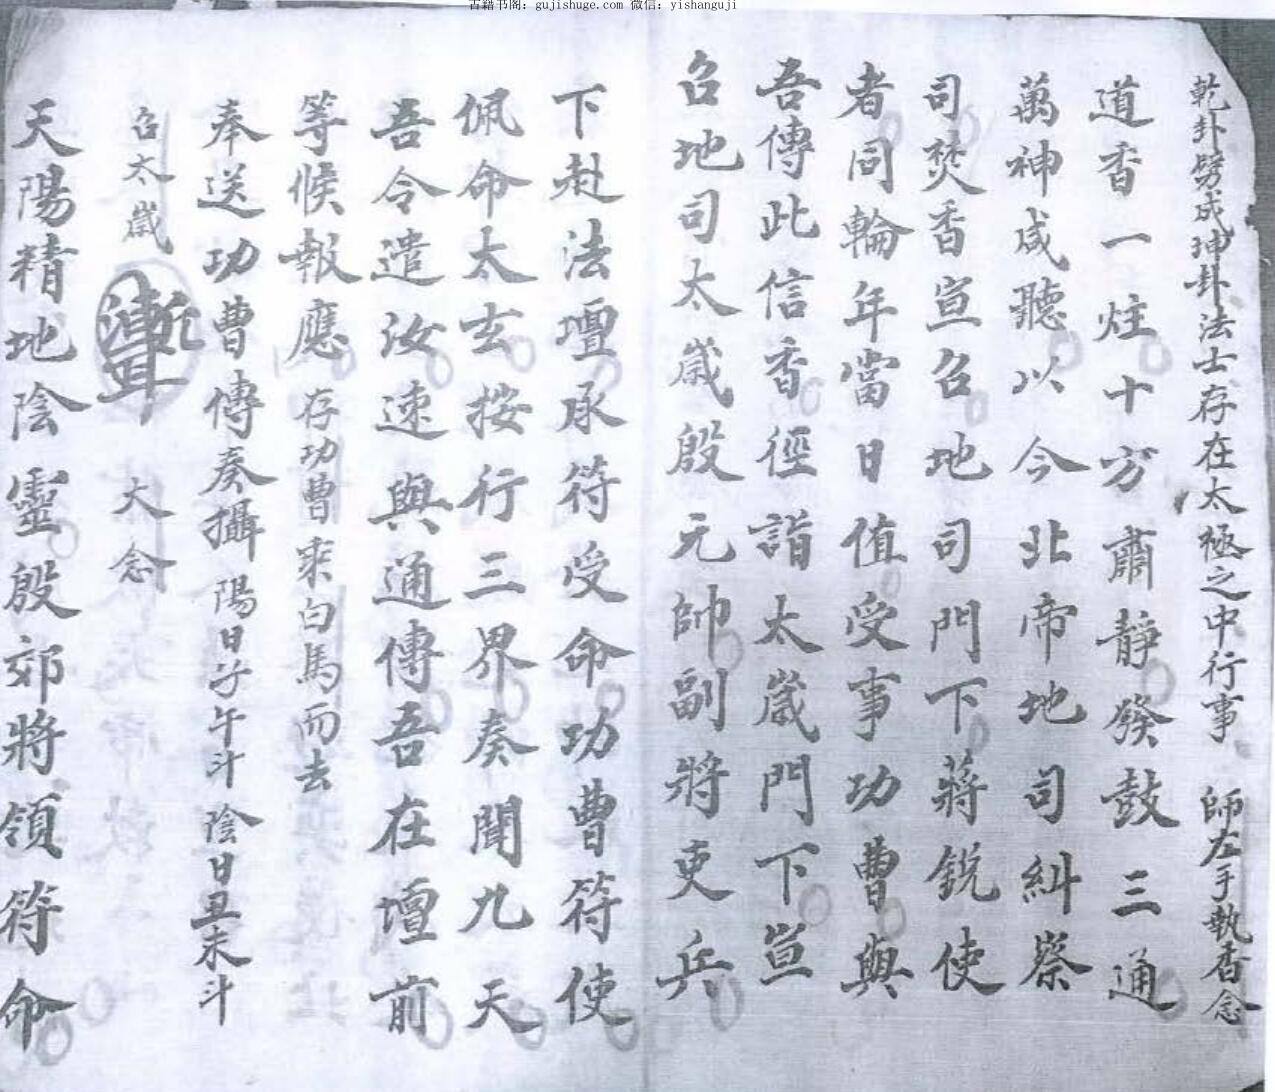 古籍书阁：gujishuge.com 微信：yishanguji
乾卦劈成坤卦法士存在太極之中行事 師左手執香念
道香一炷十方肅靜發鼓三通
萬神咸聽以今北帝地司糾察
司焚香宣召地司門下蔣銳使
者同輪年當日值受事功曹與
吾傳此信香徑詣太歲門下宣
召地司太歲殷元帥副將吏兵
下赴法壇承符受命功曹符使
佩命太玄按行三界奏聞九天
吾令遣汝速與通傳吾在壇前
等候報應 存功曹乘白馬而去
奉送功曹傳奏攝 陽日子午斗 陰日丑未斗
召太歲 大念
天陽精地陰靈殷郊將領符命